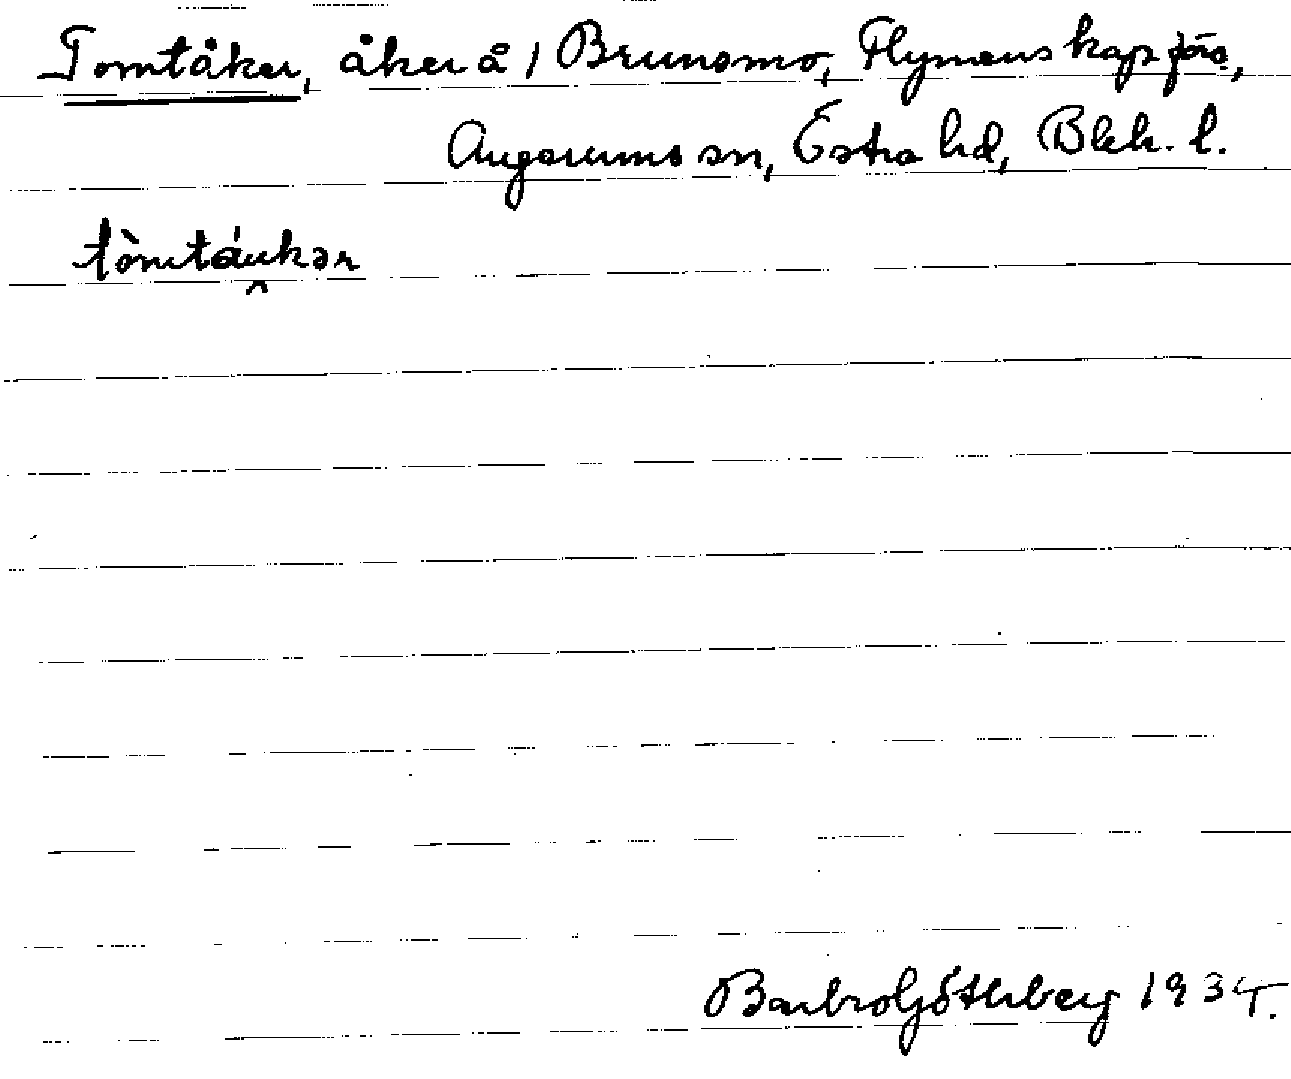 Tomtåker, åker å 1 Brunsmo, Flymens kapfös,
Augerums sn, Östra hd, Blek. l.
tòmtáukər
Barbro Götherberg 1934.